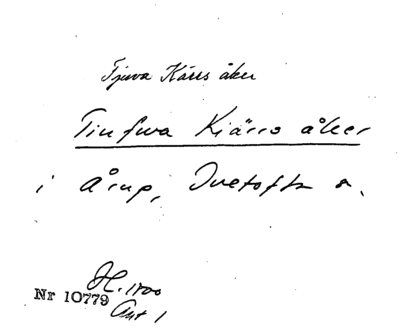 Tjuva Kärrs åker
Tiufwa Kiärrs åker
i Årup, Ivetofta s.
H. 1700
Nr 10779
Akt 1